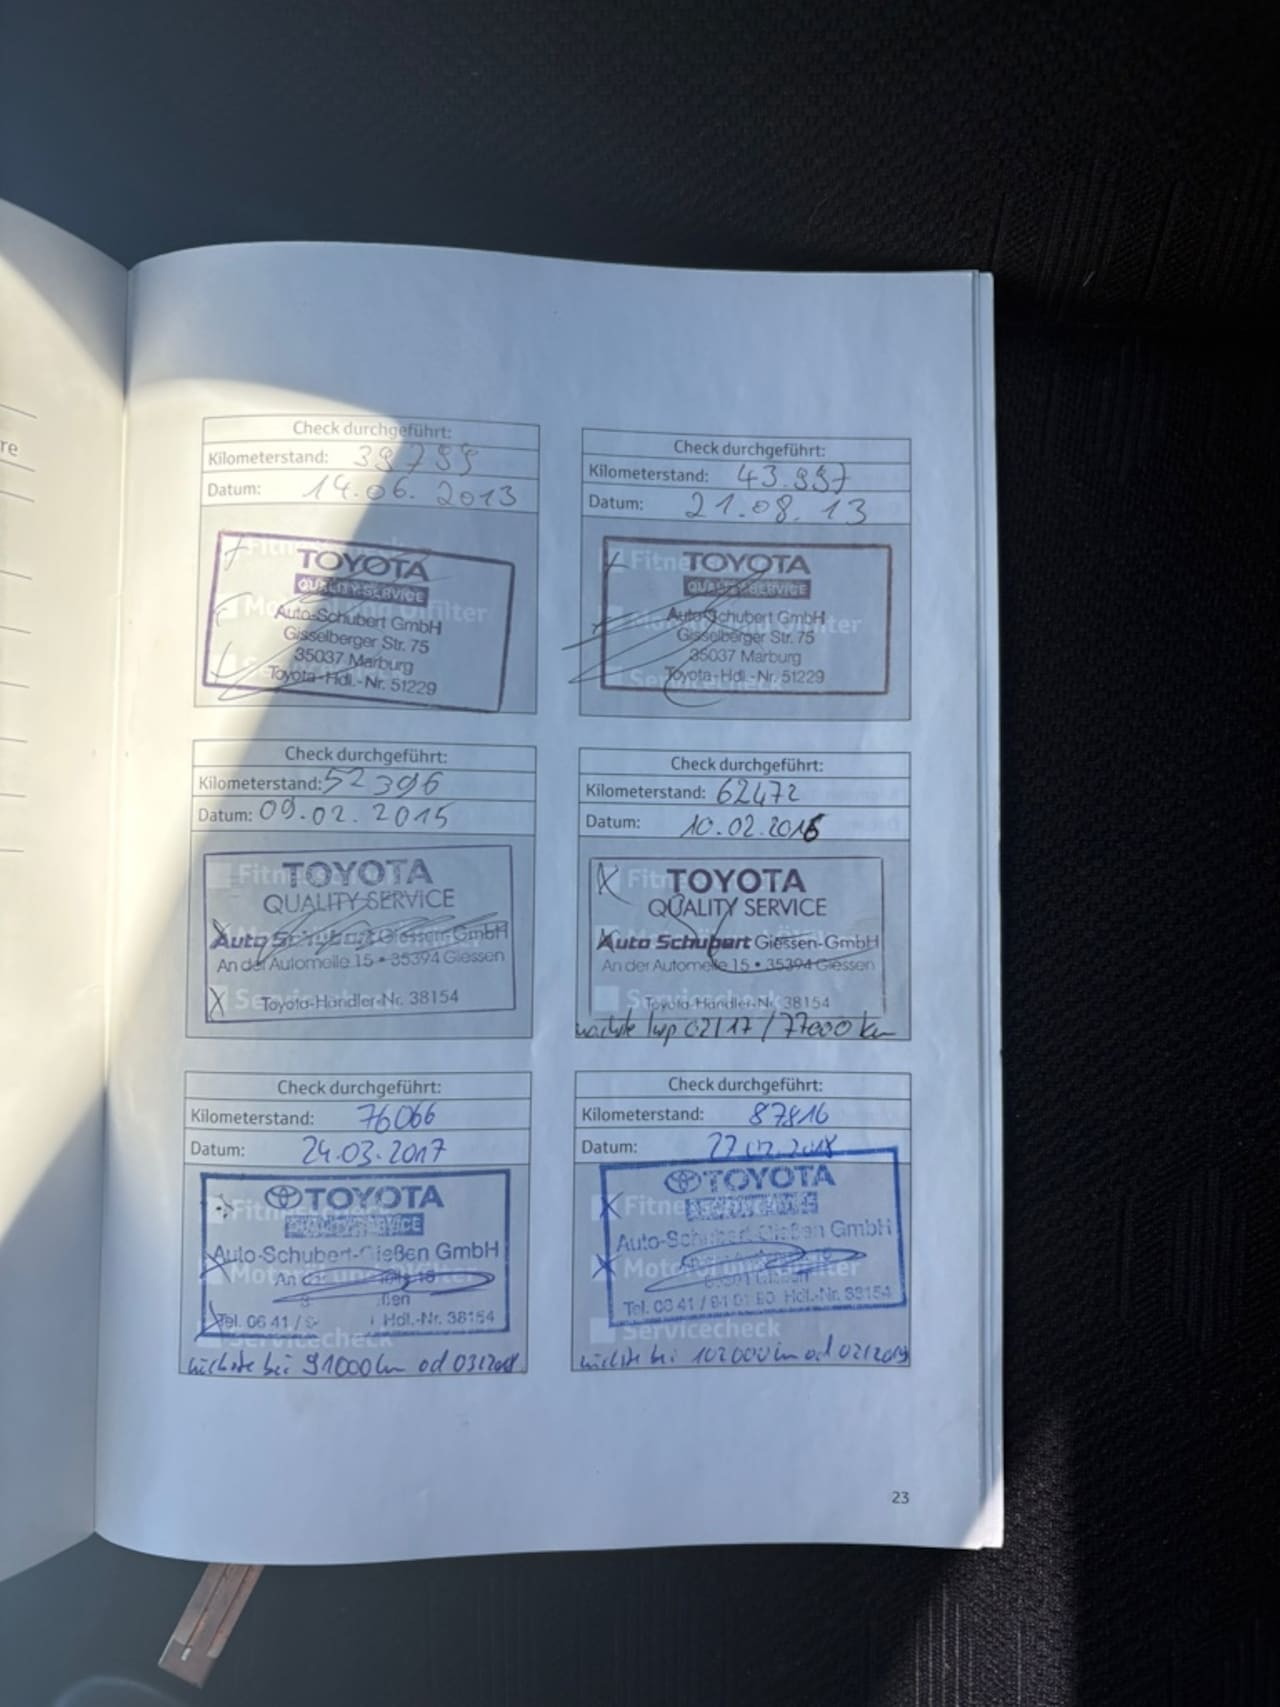 re
Check durchgeführt:
Kilometerstand: 39799
Datum: 14.06.2013
TOYOTA
QUALITY SERVICE
Auto-Schubert GmbH
Gisselberger Str. 75
35037 Marburg
Toyota-Hdl.-Nr. 51229
Check durchgeführt:
Kilometerstand: 43.997
Datum: 21.08.13
TOYOTA
QUALITY SERVICE
Auto-Schubert GmbH
Gisselberger Str. 75
35037 Marburg
Toyota-Hdl.-Nr. 51229
Servicecheck
Check durchgeführt:
Kilometerstand: 52396
Datum: 09.02.2015
TOYOTA
QUALITY SERVICE
Auto Schubert Giessen GmbH
An der Automeile 15 • 35394 Giessen
Servicecheck
Toyota-Händler-Nr. 38154
Check durchgeführt:
Kilometerstand: 62472
Datum: 10.02.2016
TOYOTA
QUALITY SERVICE
Auto Schubert Giessen-GmbH
An der Automeile 15 • 35394 Giessen
Toyota-Händler-Nr. 38154
nächste Insp 02/17 / 77000 km
Check durchgeführt:
Kilometerstand: 76066
Datum: 24.03.2017
TOYOTA
QUALITY SERVICE
Auto-Schubert-Gießen GmbH
Tel. 06 41 / 9
Hdl.-Nr. 38154
Servicecheck
nächste bei 91000 km od 03/2018
Check durchgeführt:
Kilometerstand: 87816
Datum: 27.02.2018
TOYOTA
Fitnesscheck
Auto-Schubert-Gießen GmbH
Motoröl und Ölfilter
Hdl.-Nr. 38154
Servicecheck
nächste bei 102000 km od 02/2019
23